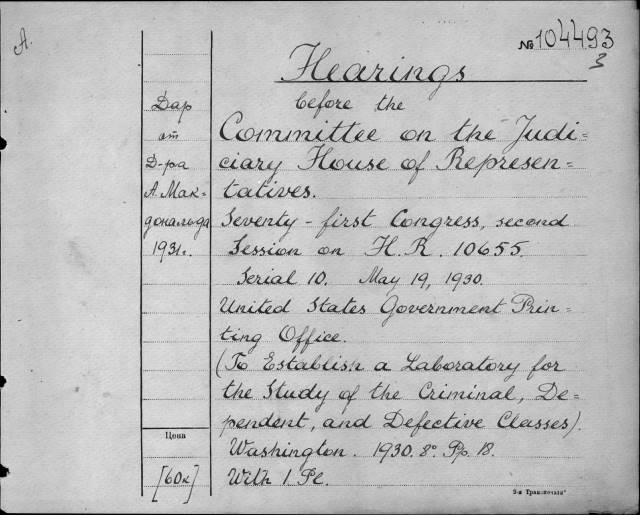 A.
№ 104493
3
Hearings
before the
Committee on the Judi=
ciary House of Represen=
tatives.
Seventy-first Congress, second
Session on H.R. 10655.
Serial 10. May 19, 1930.
United States Government Prin=
ting Office.
(To Establish a Laboratory for
the Study of the Criminal, De=
pendent, and Defective Classes).
Washington. 1930. 8° Pp. 18.
With 1 Pl.
Дар
от
Д-ра
А. Мак-
дональда
1931г.
Цена
[60к]
2-я Транспечать